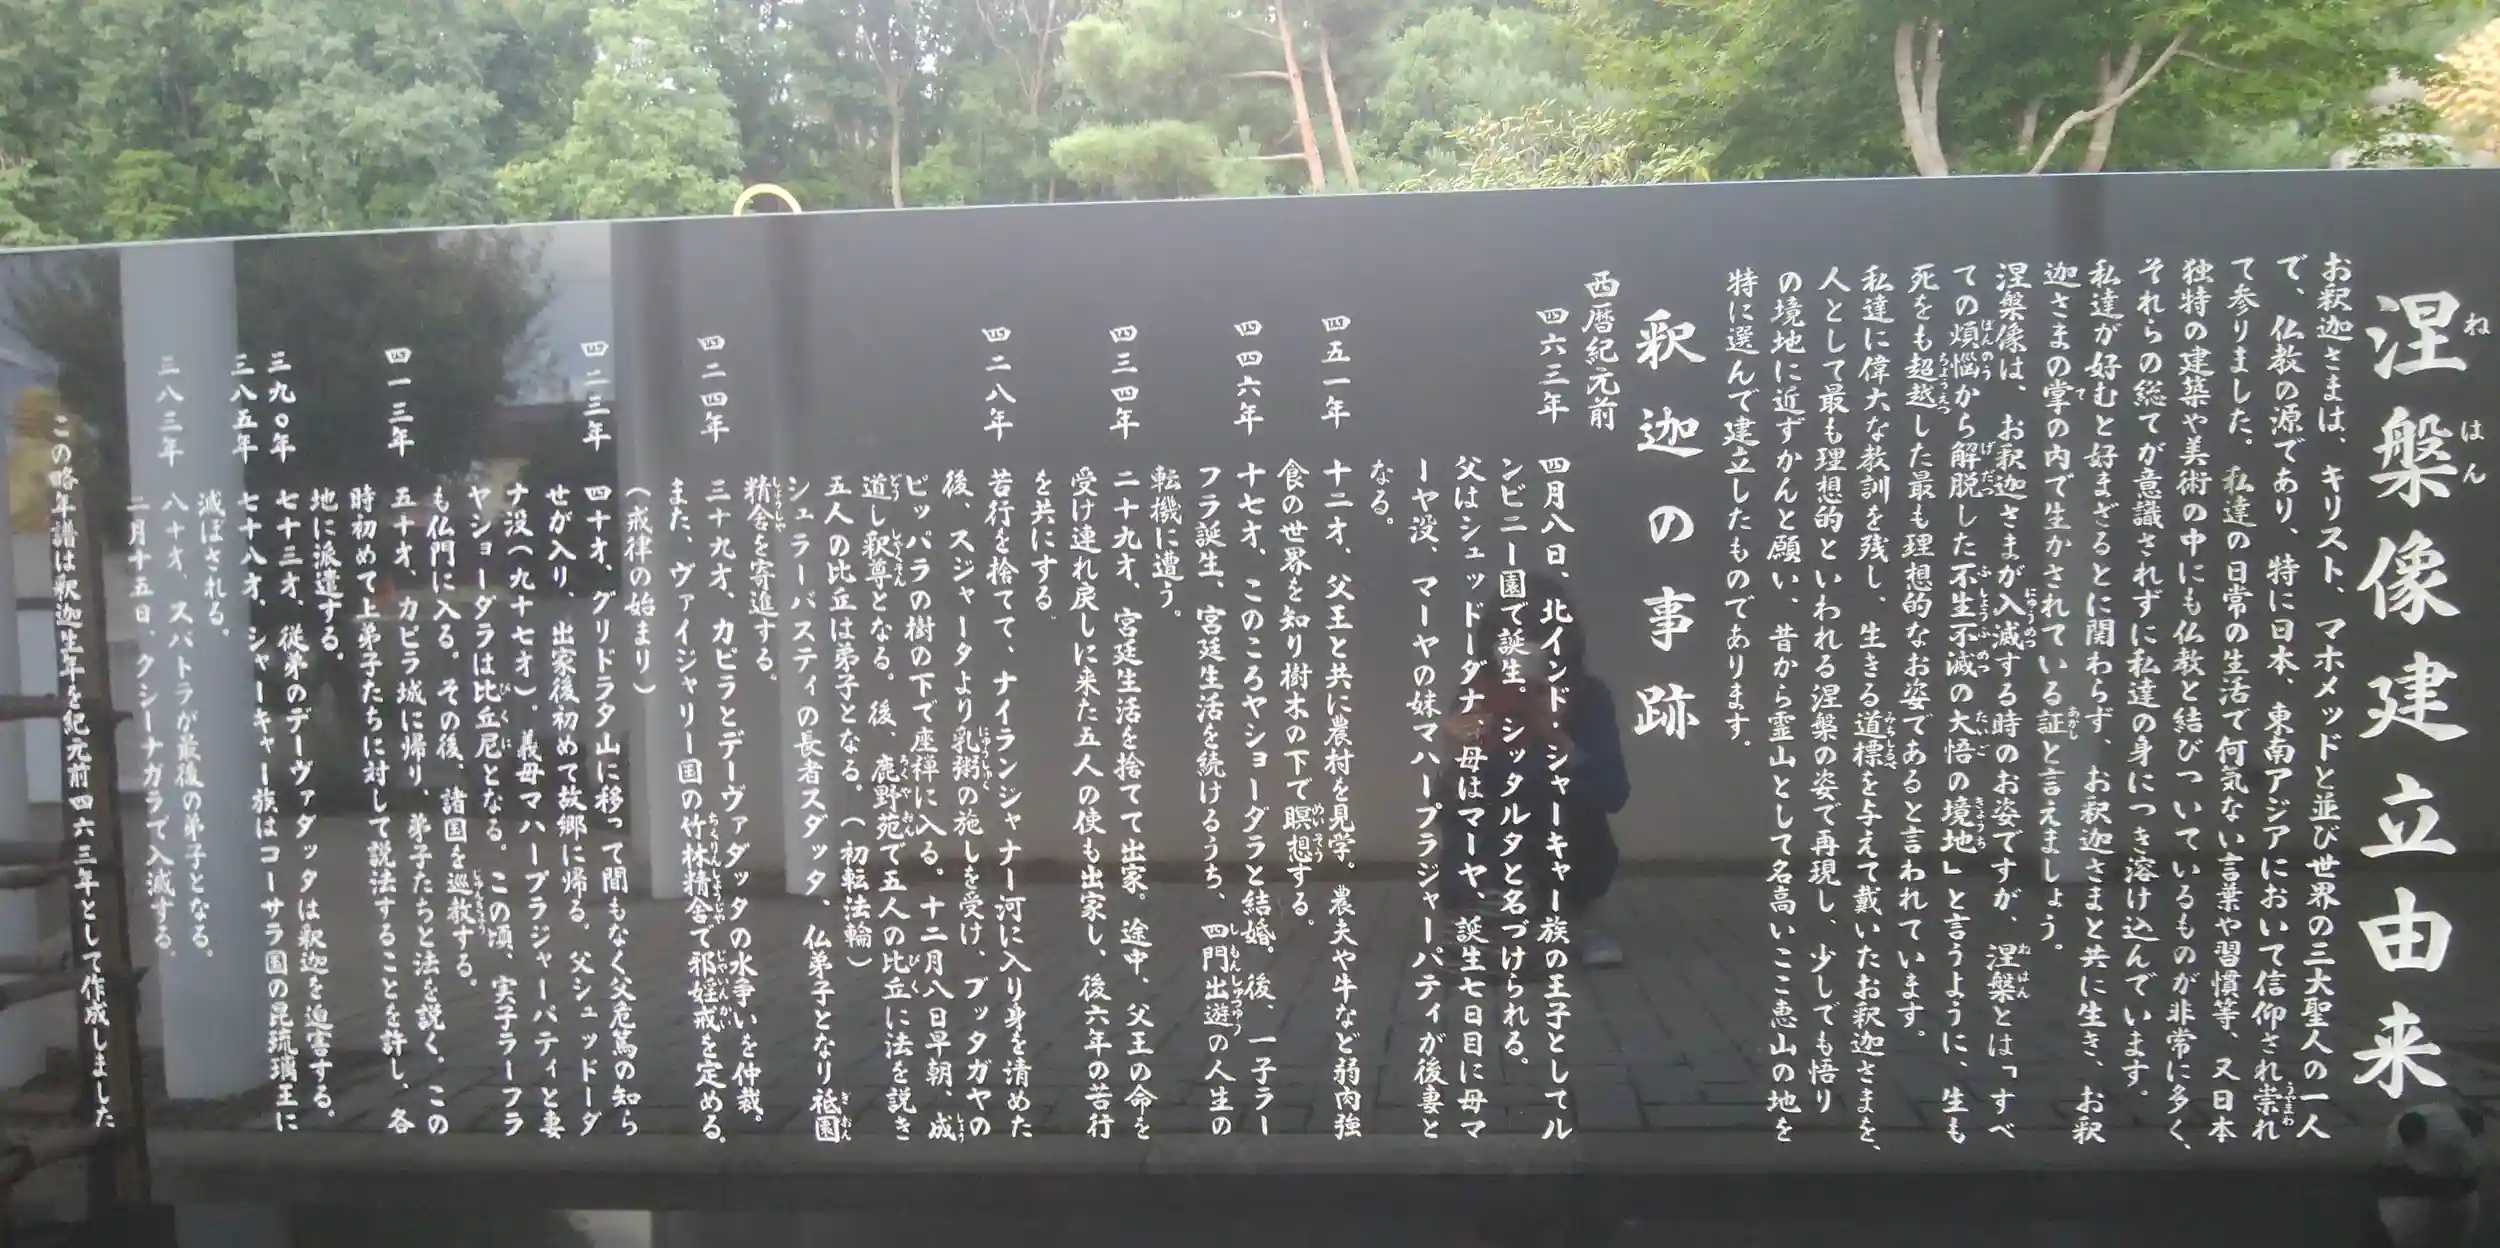 涅槃像建立由来
お釈迦さまは、キリスト、マホメッドと並び世界の三大聖人の一人
で、仏教の源であり、特に日本、東南アジアにおいて信仰され崇れ
て参りました。私達の日常の生活で何気ない言葉や習慣等、又日本
独特の建築や美術の中にも仏教と結びついているものが非常に多く、
それらの総てが意識されずに私達の身につき溶け込んでいます。
私達が好むと好まざるとに関わらず、お釈迦さまと共に生き、お釈
迦さまの掌の内で生かされている証と言えましょう。
涅槃像は、お釈迦さまが入滅する時のお姿ですが、涅槃とは「すべ
ての煩悩から解脱した不生不滅の大悟の境地」と言うように、生も
死をも超越した最も理想的なお姿であると言われています。
私達に偉大な教訓を残し、生きる道標を与えて戴いたお釈迦さまを、
人として最も理想的といわれる涅槃の姿で再現し、少しでも悟り
の境地に近ずかんと願い、昔から霊山として名高いここ恵山の地を
特に選んで建立したものであります。
釈迦の事跡
西暦紀元前
四六三年 四月八日、北インド・シャーキャー族の王子としてル
ンビニー園で誕生。シッタルタと名づけられる。
父はシュッドーダナ、母はマーヤ、誕生七日目に母マ
ーヤ没、マーヤの妹マハープラジャーパティが後妻と
なる。
四五一年 十二才、父王と共に農村を見学。農夫や牛など弱肉強
食の世界を知り樹木の下で瞑想する。
四四六年 十七才、このころヤショーダラと結婚。後、一子ラー
フラ誕生、宮廷生活を続けるうち、四門出遊の人生の
転機に遭う。
四三四年 二十九才、宮廷生活を捨てて出家。途中、父王の命を
受け連れ戻しに来た五人の使も出家し、後六年の苦行
を共にする。
四二八年 苦行を捨てて、ナイランジャナー河に入り身を清めた
後、スジャータより乳粥の施しを受け、ブッタガヤの
ピッパラの樹の下で座禅に入る。十二月八日早朝、成
道し釈尊となる。後、鹿野苑で五人の比丘に法を説き
五人の比丘は弟子となる。(初転法輪)
シュラーバスティの長者スダッタ、仏弟子となり祇園
精舎を寄進する。
四二四年 三十九才、カピラとデーヴァダッタの水争いを仲裁。
また、ヴァイジャリー国の竹林精舎で邪婬戒を定める。
(戒律の始まり)
四二三年 四十才、グリドラタ山に移って間もなく父危篤の知ら
せが入り、出家後初めて故郷に帰る。父シュッドーダ
ナ没(九十七才)。義母マハープラジャーパティと妻
ヤショーダラは比丘尼となる。この頃、実子ラーフラ
も仏門に入る。その後、諸国を巡教する。
四一三年 五十才、カピラ城に帰り、弟子たちと法を説く、この
時初めて上弟子たちに対して説法することを許し、各
地に派遣する。
三九〇年 七十三才、従弟のデーヴァダッタは釈迦を迫害する。
三八五年 七十八才、シャーキャー族はコーサラ国の昆琉璃王に
滅ぼされる。
三八三年 八十才、スバトラが最後の弟子となる。
二月十五日、クシーナガラで入滅する。
この略年譜は釈迦生年を紀元前四六三年として作成しました